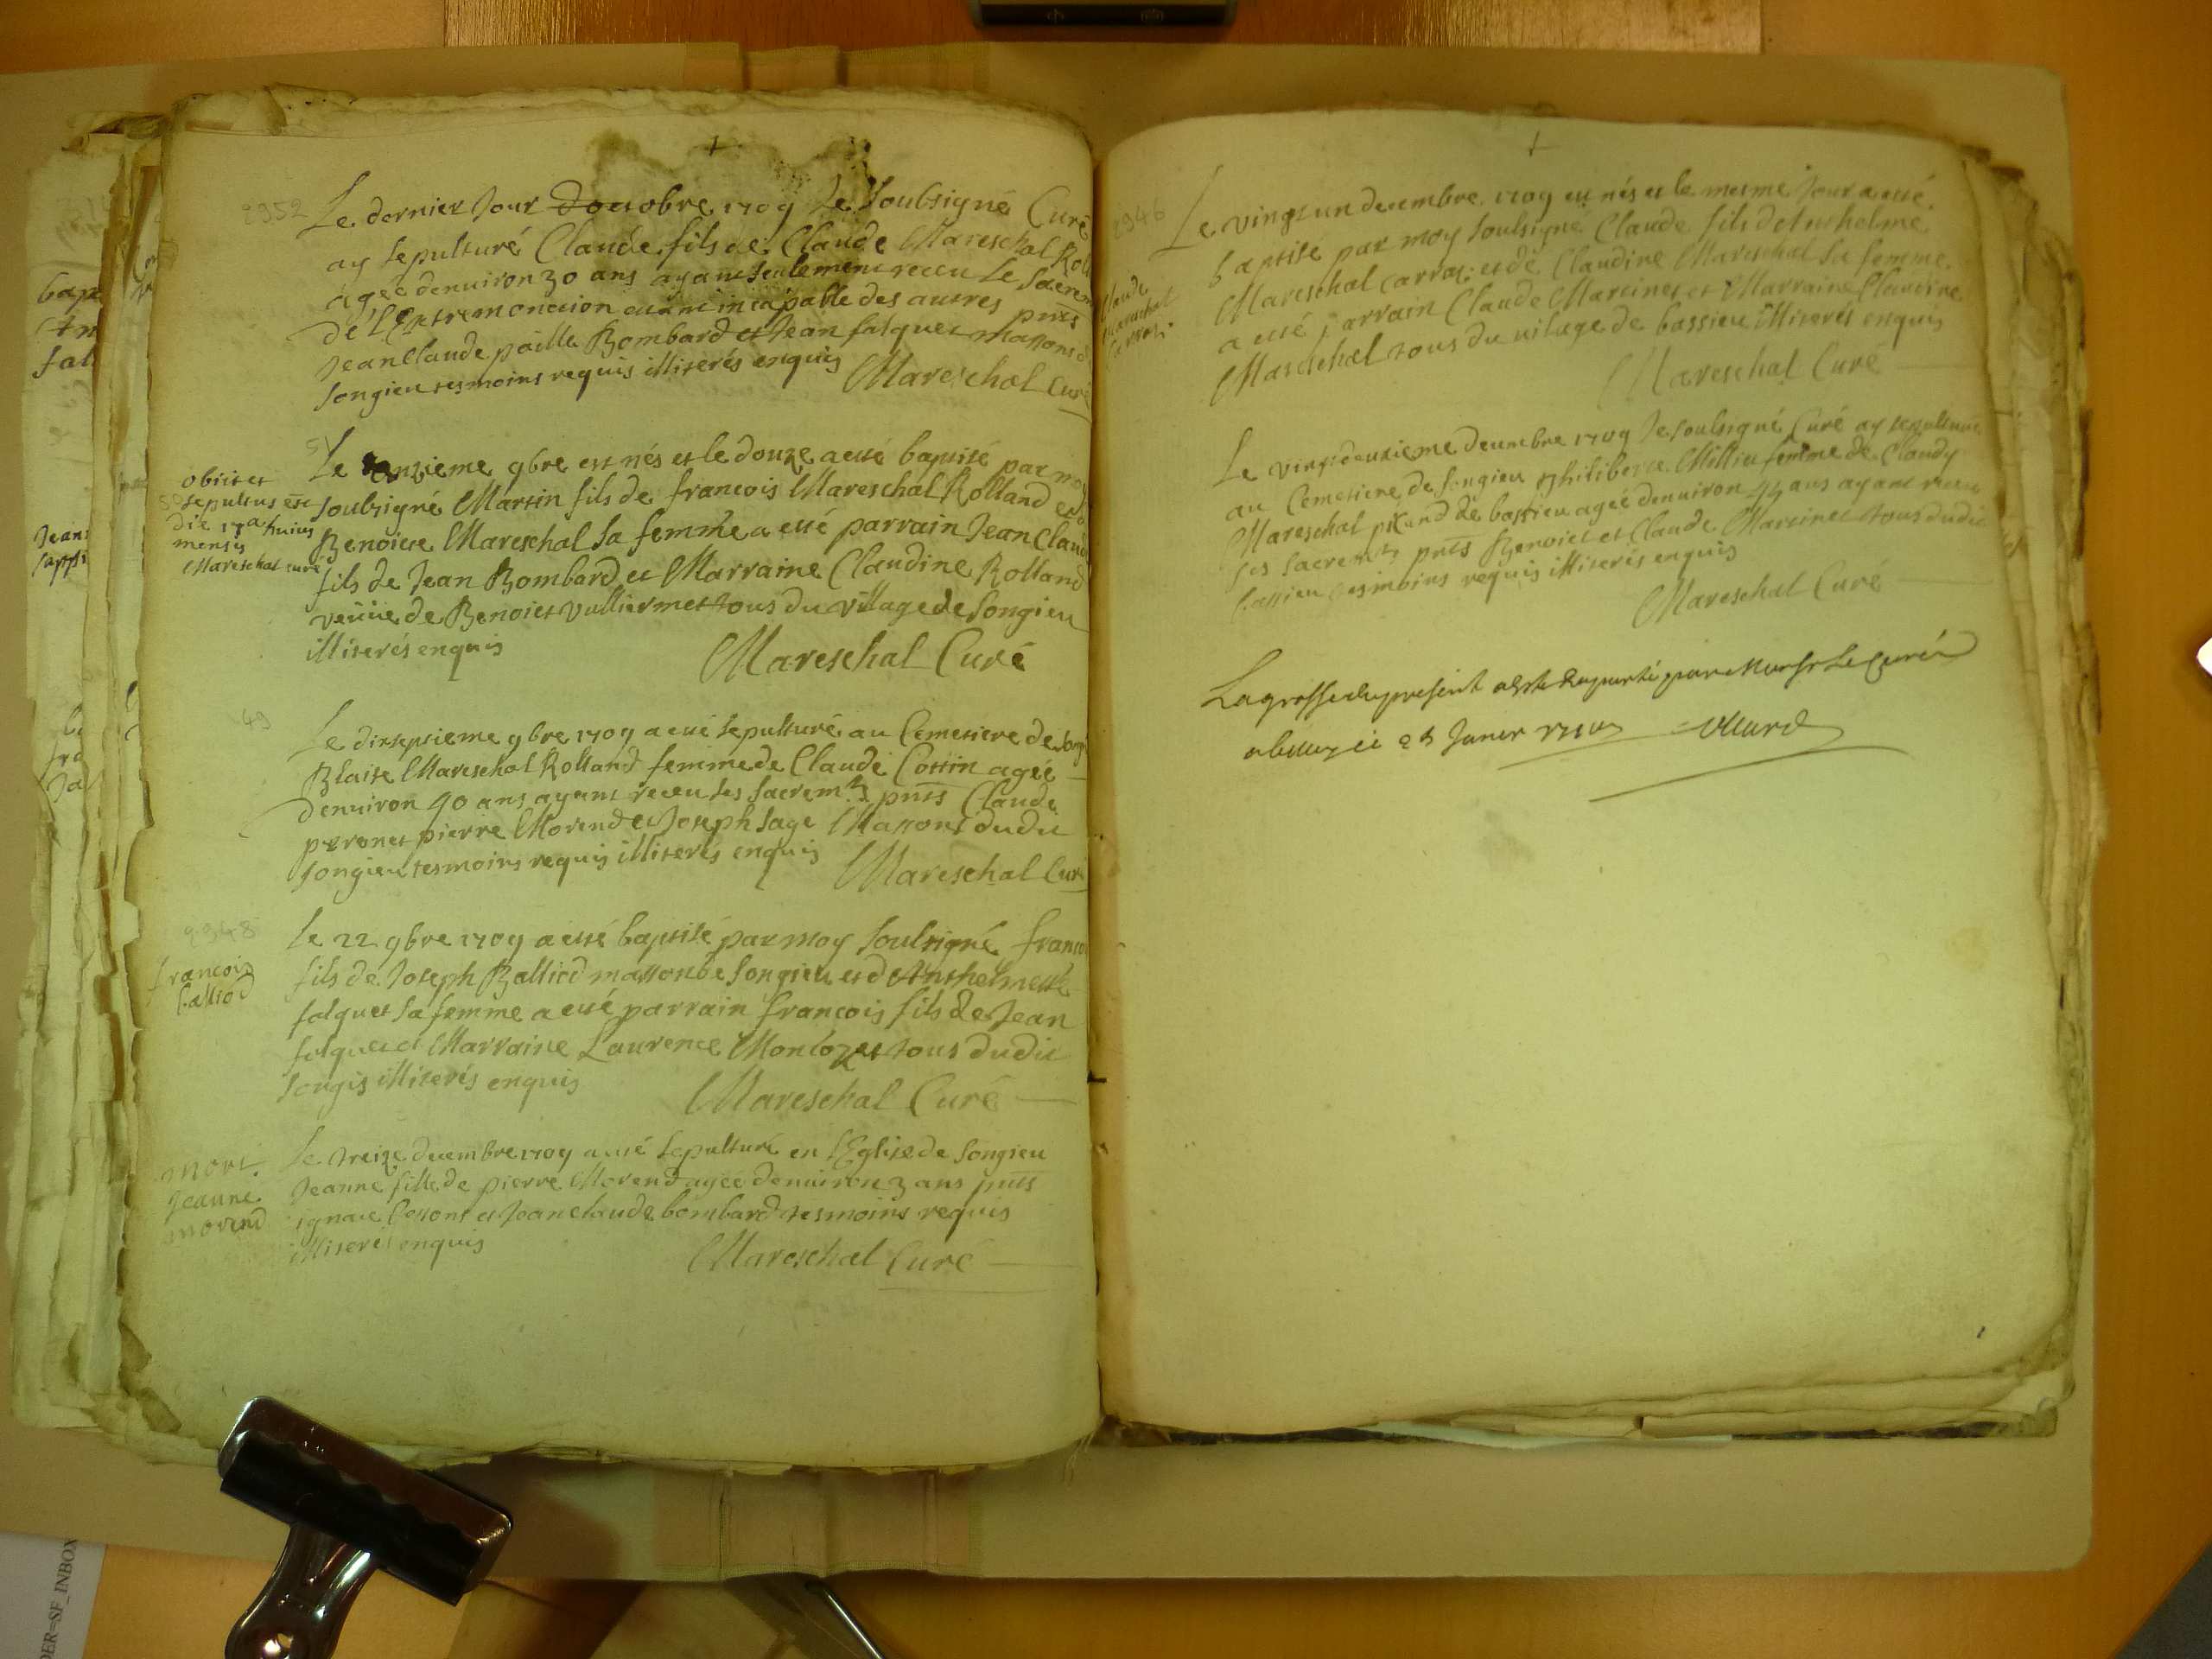 2952
Le dernier Jour Doctobre 1709 Je Soubsigné Curé
ay sepulturé Claude fils de Claude Mareschal Roll
agée denuiron 30 ans ayant seulement receu le Sacrem
de l'Extremonction estant incapable des autres pnts
Jean Claude paille Bombard et Jean falquet massons d
songieu tesmoins requis illiterés enquis
Mareschal Curé
51
Le onzieme 9bre est nés et le douze a esté baptisé par moy
soubsigné Martin fils de francois Mareschal Rolland et d
Benoite Mareschal sa femme a esté parrain Jean Claude
fils de Jean Bombard et Marraine Claudine Rolland
veuue de Benoict Vulliermet tous du village de Songieu
illiterés enquis
Mareschal Curé
obiit et
50
sepultus est
die 17a huius
mensis
Mareschal curé
49
Le dixseptieme 9bre 1709 a esté sepulturé au Cemetiere de Song
Blaise Mareschal Rolland femme de Claude Cottin agée
denuiron 40 ans ayant receu les sacremts pnts Claude
peronet pierre Morend et Joseph sage Massons dudit
songieu tesmoins requis illiterés enquis
Mareschal Curé
2948
francois
balliod
Le 22 9bre 1709 a esté baptisé par moy soubsigné franco
fils de Joseph Balliod masson de songieu et d'Anthelmette
falquet sa femme a esté parrain francois fils de Jean
falquet et Marraine Laurence Monlozet tous dudit
songis illiterés enquis
Mareschal Curé
mort
Jeanne
morend
Le treize decembre 1709 a esté sepulturé en l'Eglise de songieu
Jeanne fille de pierre Morend agée denuiron 3 ans pnts
ignace et Jean claude bombard tesmoins requis
illiterés enquis
Mareschal Curé
2946
Claude
Mareschal
Carroz
Le vingt un decembre 1709 est nés et le mesme Jour a esté
baptisé par moy soubsigné Claude fils d'Anthelme
Mareschal carroz et de Claudine Mareschal sa femme
a esté parrain Claude Martinet et Marraine Claudine
Mareschal tous du vilage de bassieu illiterés enquis
Mareschal Curé
Le vingt deuxieme decembre 1709 Je soubsigné Curé ay sepulturé
au Cemetiere de songieu philiberte Millieu femme de Claudy
Mareschal de bassieu agée denuiron ans ayant receu
ses sacremts pnts Benoict et Claude Martinet tous dudit
bassieu tesmoins requis illiterés enquis
Mareschal Curé
La grosse du present a esté raporté par Monsr Le Curé
a belley ce 28 Janvr 1710